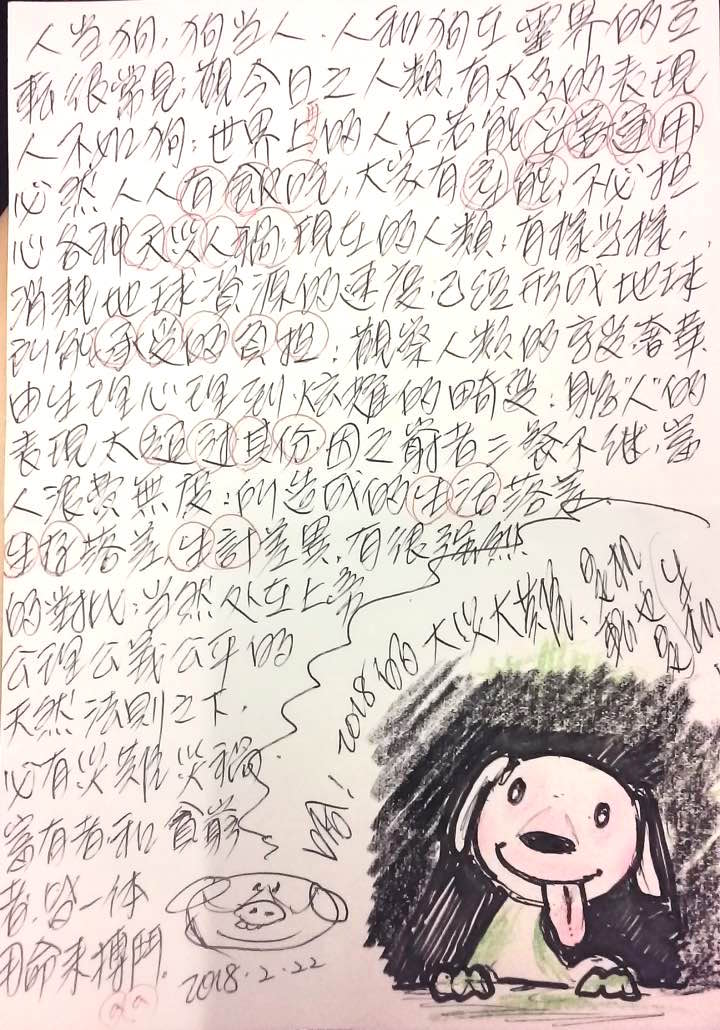 人当狗,狗当人.人和狗在靈界的互
転很常見;觀今日之人類,有太多的表現
人不如狗;世界上的人口若能妥善運用
必然人人有飯吃,大家有
心各种天災人禍;現在的人類,有樣学樣,
消耗地球資源的速度已經形成地球
所能承受的負担;觀察人類的享受奢華
由生理心理到炫耀的畸变;身為"人"的
表現太超过其份,因之窮者三餐不继,富
人浪費無度;所造成的生活落差,
生存落差,生計差異,有很强烈
的對比;当然处在上
公理公義公平的
天然法則之下,
必有災難災禍
富有者和貧窮
者.皆一体
用命来搏鬥.
2018.2.22
2018的大災大難;危机
也危机